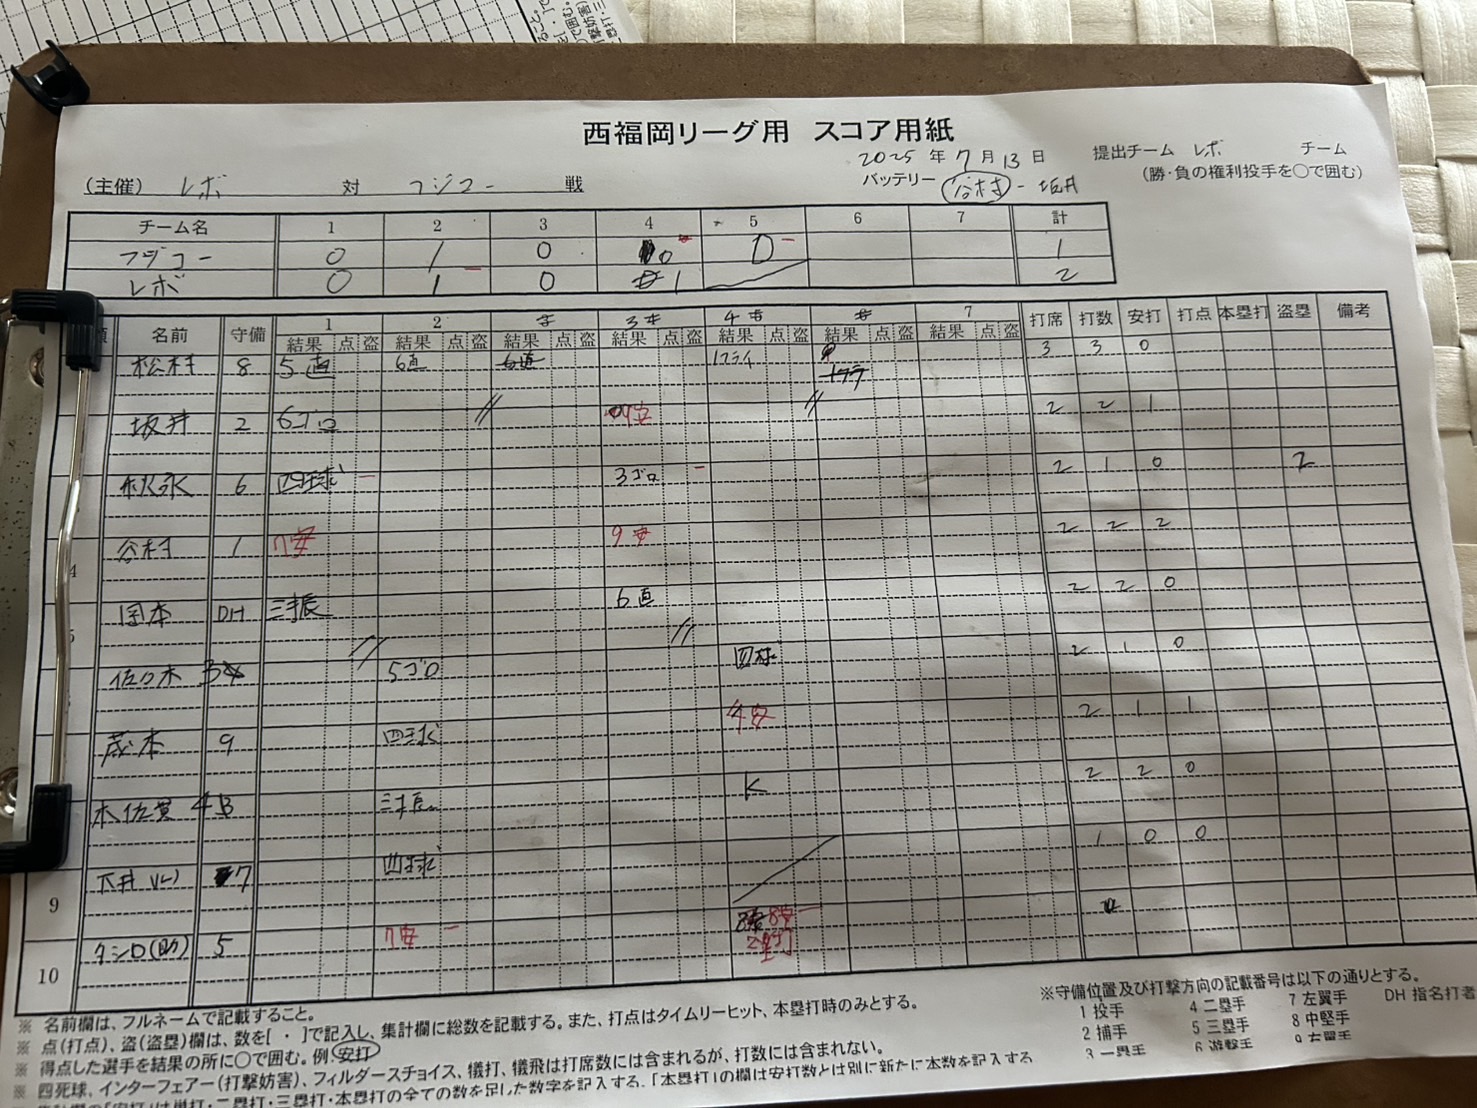 西福岡リーグ用 スコア用紙
2025 年 7 月 13 日
提出チーム レボ チーム
(主催) レボ 対 フジコー 戦
バッテリー 谷村 - 坂井
(勝・負の権利投手を○で囲む)
チーム名 1 2 3 4 5 6 7 計
フジコー 0 1 0 0 0 1
レボ 0 1 0 1 2
名前 守備 1 2 3キ 4キ 7 打席 打数 安打 打点 本塁打 盗塁 備考
結果 点 盗 結果 点 盗 結果 点 盗 結果 点 盗 結果 点 盗 結果 点 盗 結果 点 盗
松村 8 5直 6直 6直 1フライ 3 3 0
坂井 2 6ゴロ 安 2 2 1
松永 6 四球 3ゴロ 2 1 0 2
谷村 1 7安 9安 2 2 2
岡本 DH 三振 6直 2 2 0
佐々木 3 5ゴロ 四球 2 1 0
蔵本 9 四球 4安 2 1 1
木佐貫 4 三振 K 2 2 0
9 下井 7 四球 1 0 0
10 タシロ(助) 5 7安 8安
2塁打
※ 名前欄は、フルネームで記載すること。
※ 点(打点)、盗(盗塁)欄は、数を[ ・ ]で記入し、集計欄に総数を記載する。また、打点はタイムリーヒット、本塁打時のみとする。
※ 得点した選手を結果の所に○で囲む。例 安打
※ 四死球、インターフェアー(打撃妨害)、フィルダースチョイス、犠打、犠飛は打席数には含まれるが、打数には含まれない。
集計欄の「安打」は単打・二塁打・三塁打・本塁打の全ての数を足した数字を記入する。「本塁打」の欄は安打数とは別に新たに本数を記入する
※守備位置及び打撃方向の記載番号は以下の通りとする。
1 投手 4 二塁手 7 左翼手 DH 指名打者
2 捕手 5 三塁手 8 中堅手
3 一塁手 6 遊撃手 9 右翼手